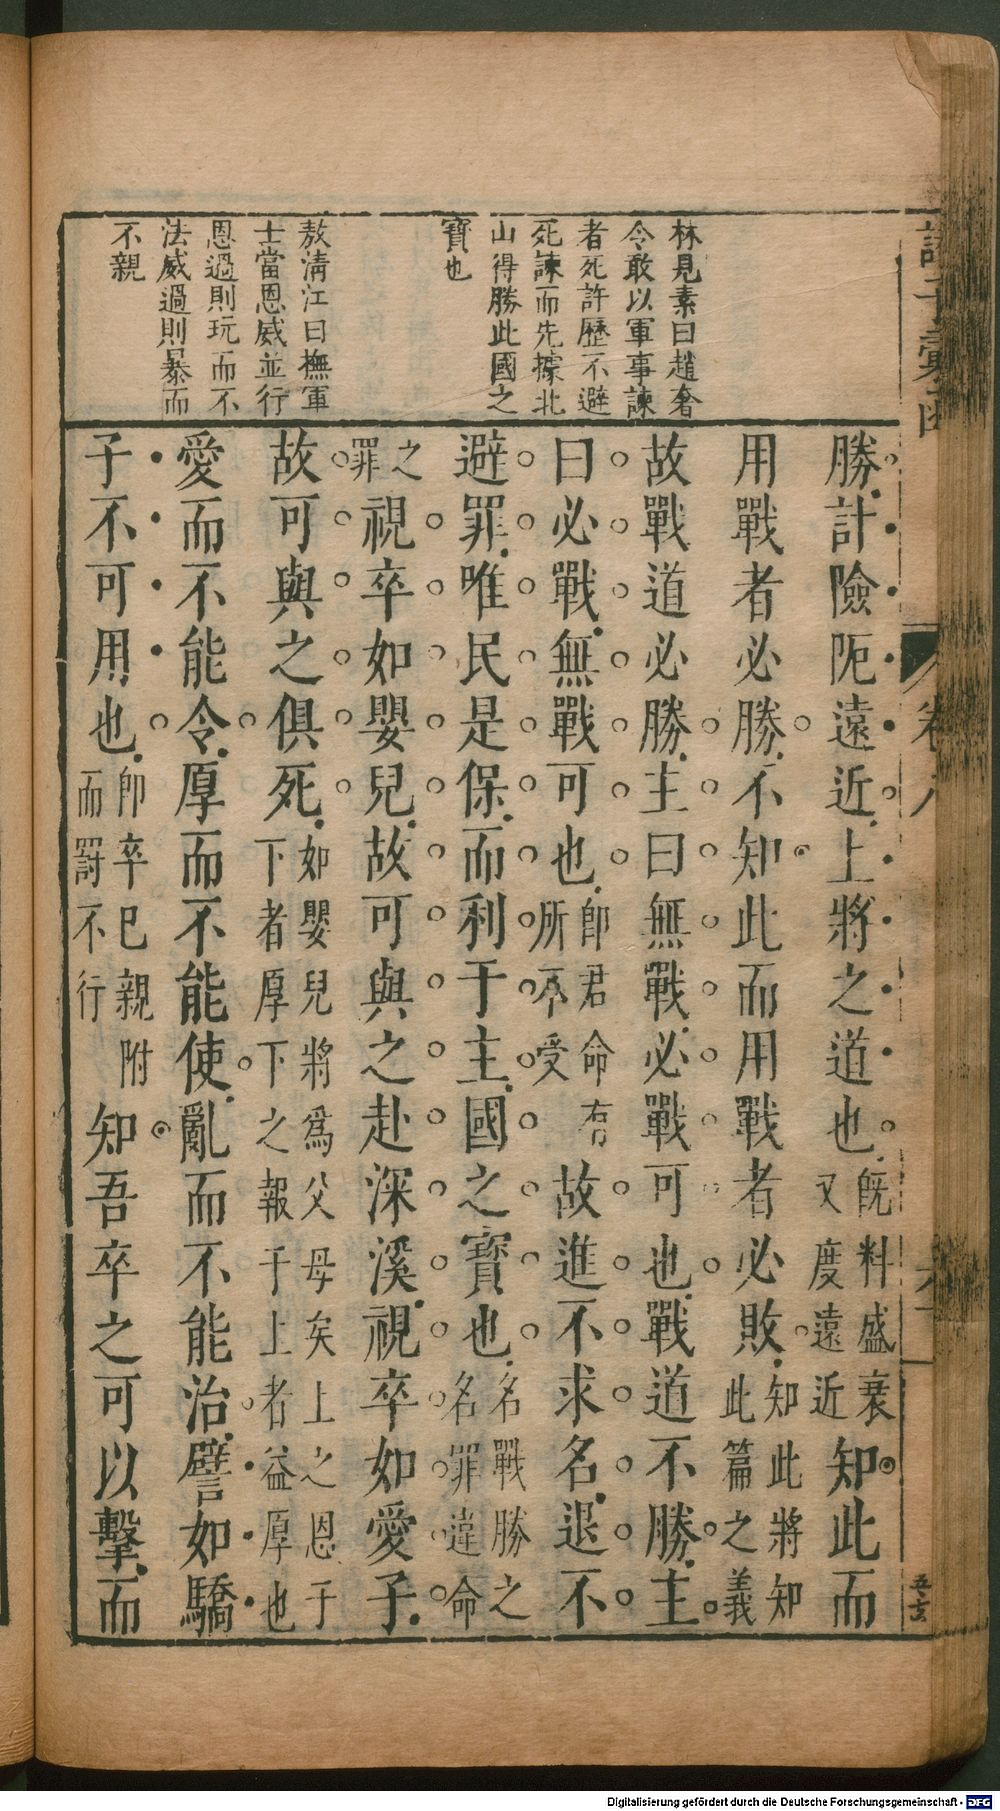 林見素曰趙奢
令敢以軍事諫
者死許歷不避
死諫而先據北
山得勝此國之
寶也
敖清江曰撫軍
士當恩威並行
恩過則玩而不
法威過則暴而
不親
勝計險阨遠近上將之道也既料盛衰又度遠近知此而
用戰者必勝不知此而用戰者必敗知此將知此篇之義
故戰道必勝主曰無戰必戰可也戰道不勝主
曰必戰無戰可也即君命有所不受故進不求名退不
避罪唯民是保而利于主國之寶也名戰勝之名罪違命
之罪視卒如嬰兒故可與之赴深溪視卒如愛子
故可與之俱死如嬰兒將爲父母矣上之恩于下者厚下之報于上者益厚也
愛而不能令厚而不能使亂而不能治譬如驕
子不可用也卽卒已親附而罰不行知吾卒之可以擊而
卷八
Digitalisierung gefördert durch die Deutsche Forschungsgemeinschaft - DFG